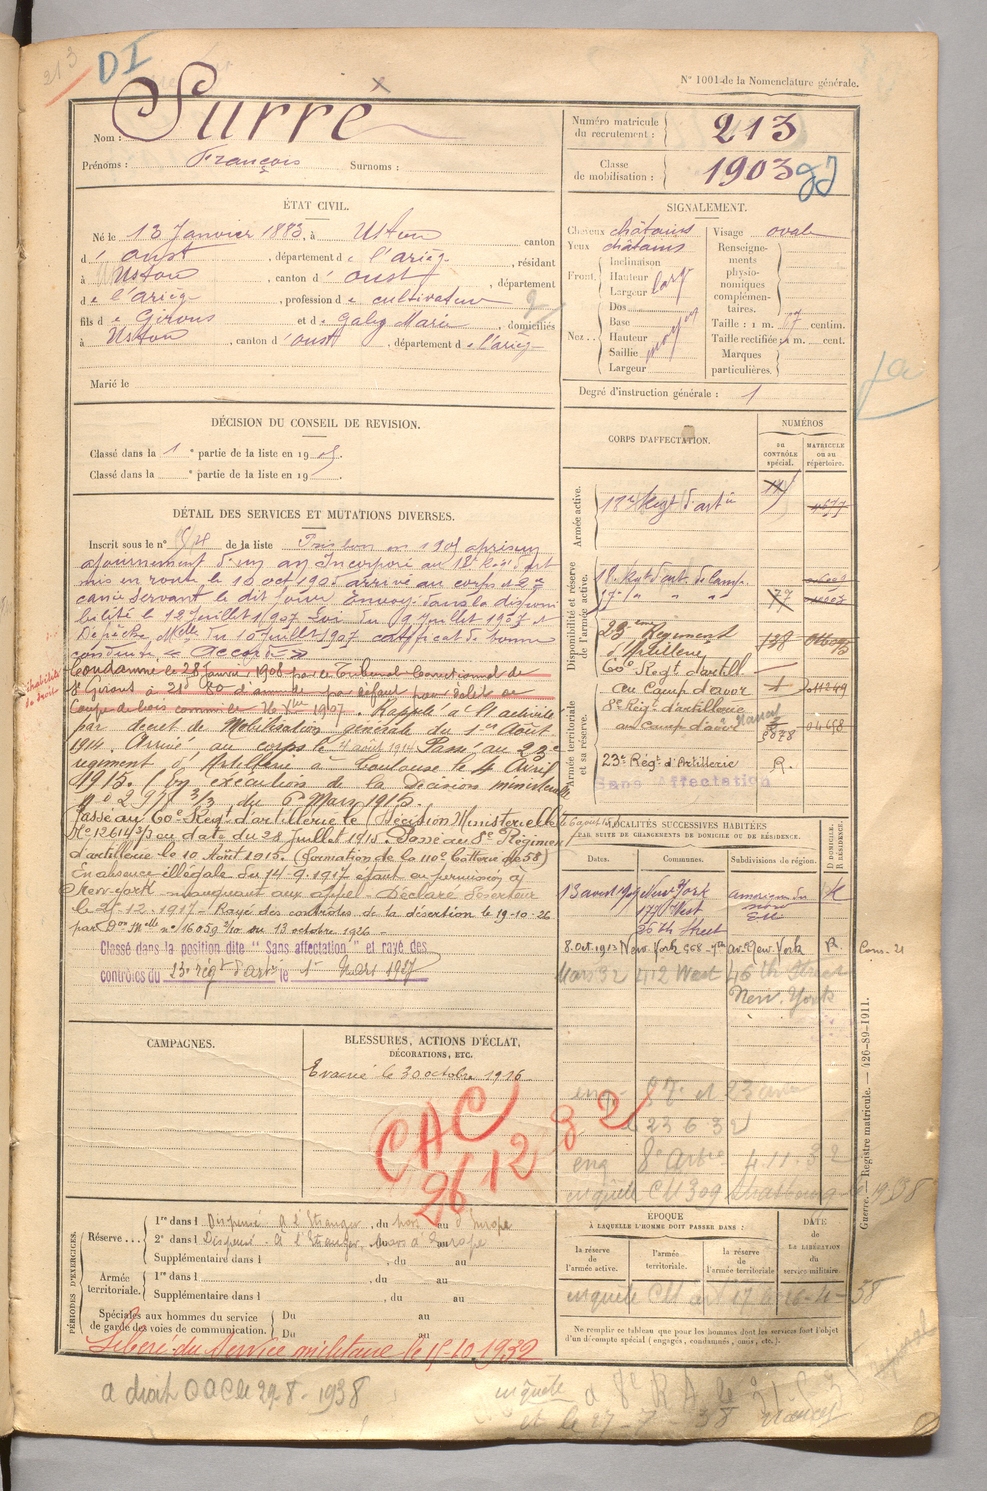 213
DI
N° 1001 de la Nomenclature générale.
Nom : Surre
Prénoms : François Surnoms :
Numéro matricule du recrutement : 213
Classe de mobilisation : 1903
ÉTAT CIVIL.
Né le 13 Janvier 1883, à Ustou canton
d'oust, département de l'ariège, résidant
à Ustou, canton d'oust, département
de l'ariège, profession de cultivateur
fils de Girous et de Galey Marie, domiciliés
à Ustou, canton d'oust, département de l'ariège
Marié le
SIGNALEMENT.
Cheveux châtains
Yeux châtains
Front
Inclinaison
Hauteur
Largeur
large
Nez
Dos
Base
Hauteur
Saillie
Largeur
moyen
Visage ovale
Renseignements physionomiques complémentaires.
Taille : 1 m. 67 centim.
Taille rectifiée : 1 m. cent.
Marques particulières.
Degré d'instruction générale : 1
DÉCISION DU CONSEIL DE REVISION.
Classé dans la 1e partie de la liste en 1905.
Classé dans la e partie de la liste en 19
DÉTAIL DES SERVICES ET MUTATIONS DIVERSES.
Inscrit sous le n° de la liste
ajournement d'un an Incorporé au 18e Rég. d'art
mis en route le 10 oct 1905 arrivé au corps et 2e
canr servant le dit jour Envoyé dans la disponi
bilité le 12 Juillet 1907 Loi du 9 Juillet 1907 et
Dépêche Melle du 10 Juillet 1907 certificat de bonne
conduite « Accordé »
Condamné le 28 Janvr 1908 par le Tribunal Correctionnel de
St Girons à d'amende par défaut pour délit de
Coupe de bois commis le 26 Xbre 1907. Rappelé à l'activité
par décret de Mobilisation Générale du 1er Août
1914. Arrivé au corps le 4 août 1914 Passé au 23e
régiment d'Artillerie à Toulouse le 4 Avril
1915. En exécution de la décision ministérielle
n° 2971 3/3 du 6 Mars 1915.
Passé au 60e Régt d'artillerie le (Décision Ministerielle
N° 12614 3/3 au date du 28 Juillet 1915. Passé au 8e Régiment
d'artillerie le 10 Août 1915. (formation de la 110e batterie de 58)
En absence illégale du 14-9-1917 étant en permission à
New-York manquant aux appel - Déclaré déserteur
le 25-12-1917 - Rayé des contrôles de la désertion le 19-10-26
par Don Melle n° 16059 2/10 du 13 octobre 1926 -
Classé dans la position dite "Sans affectation" et rayé des
contrôles du 23e régt d'artie le 1er Mars 1927
CORPS D'AFFECTATION.
NUMÉROS
AU CONTRÔLE SPÉCIAL.
MATRICULE OU AU RÉPERTOIRE.
Armée active.
18e Regt d'artie
Disponibilité et réserve de l'armée active.
18e Regt d'art. de Camp.
17e " " "
77
23ème Régiment d'Artillerie
128
60e Regt d'artill.
Armée territoriale et sa réserve.
au Camp d'avor
8e Régt d'artillerie
au camp d'avor Nancy
04458
23e Régt d'Artillerie R.
Sans affectation
LOCALITÉS SUCCESSIVES HABITÉES
PAR SUITE DE CHANGEMENTS DE DOMICILE OU DE RÉSIDENCE.
Dates. Communes. Subdivisions de région. D DOMICILE. R RÉSIDENCE.
New-York
West
36th Street
amérique du nord
8. Oct. 1913 New-York 568-7th av. New York R. Cons-21
Mars 32 412 West 46th Street
New-York
CAMPAGNES.
BLESSURES, ACTIONS D'ÉCLAT, DÉCORATIONS, ETC.
Evacué le 30 octobre 1916
CAC
26 12 32
23 6 32
enq 8e Artie 4.11.32
enquête CM 309 Strasbourg le 1938
PÉRIODES D'EXERCICES.
Réserve...
1re dans l Dispensé à l'Etranger, du hors au d'Europe
2e dans l Dispensé à l'Etranger, hors d'Europe
Supplémentaire dans l , du au
Armée territoriale.
1re dans l , du au
Supplémentaire dans l , du au
Spéciales aux hommes du service de garde des voies de communication.
Du au
Du au
Libéré du Service militaire le 15-10-1932
ÉPOQUE
À LAQUELLE L'HOMME DOIT PASSER DANS :
la réserve de l'armée active.
l'armée territoriale.
la réserve de l'armée territoriale
DATE de LA LIBÉRATION du service militaire.
Ne remplir ce tableau que pour les hommes dont les services font l'objet d'un décompte spécial (engagés, condamnés, omis, etc.).
Guerre. — Registre matricule. — 426-89-1911.
a droit CAC le 29-8-1938
enquête
et le 27-7-38 Nancy